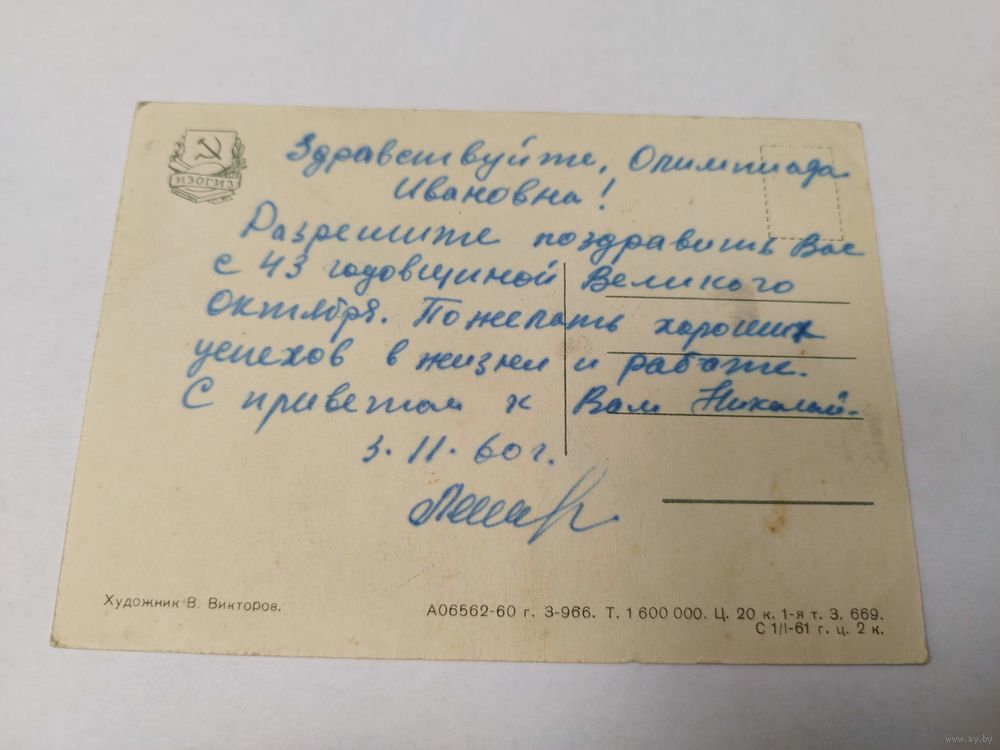 ИЗОГИЗ
Здравствуйте, Олимпиада
Ивановна!
Разрешите поздравить Вас
с 43 годовщиной Великого
Октября. Пожелать хороших
успехов в жизни и работе.
С приветом к Вам Николай.
3.11.60г.
Художник В. Викторов.
А06562-60 г. З-966. Т. 1 600 000. Ц. 20 к. 1-я т. З. 669.
С 1/I-61 г. ц. 2 к.
www.ay.by